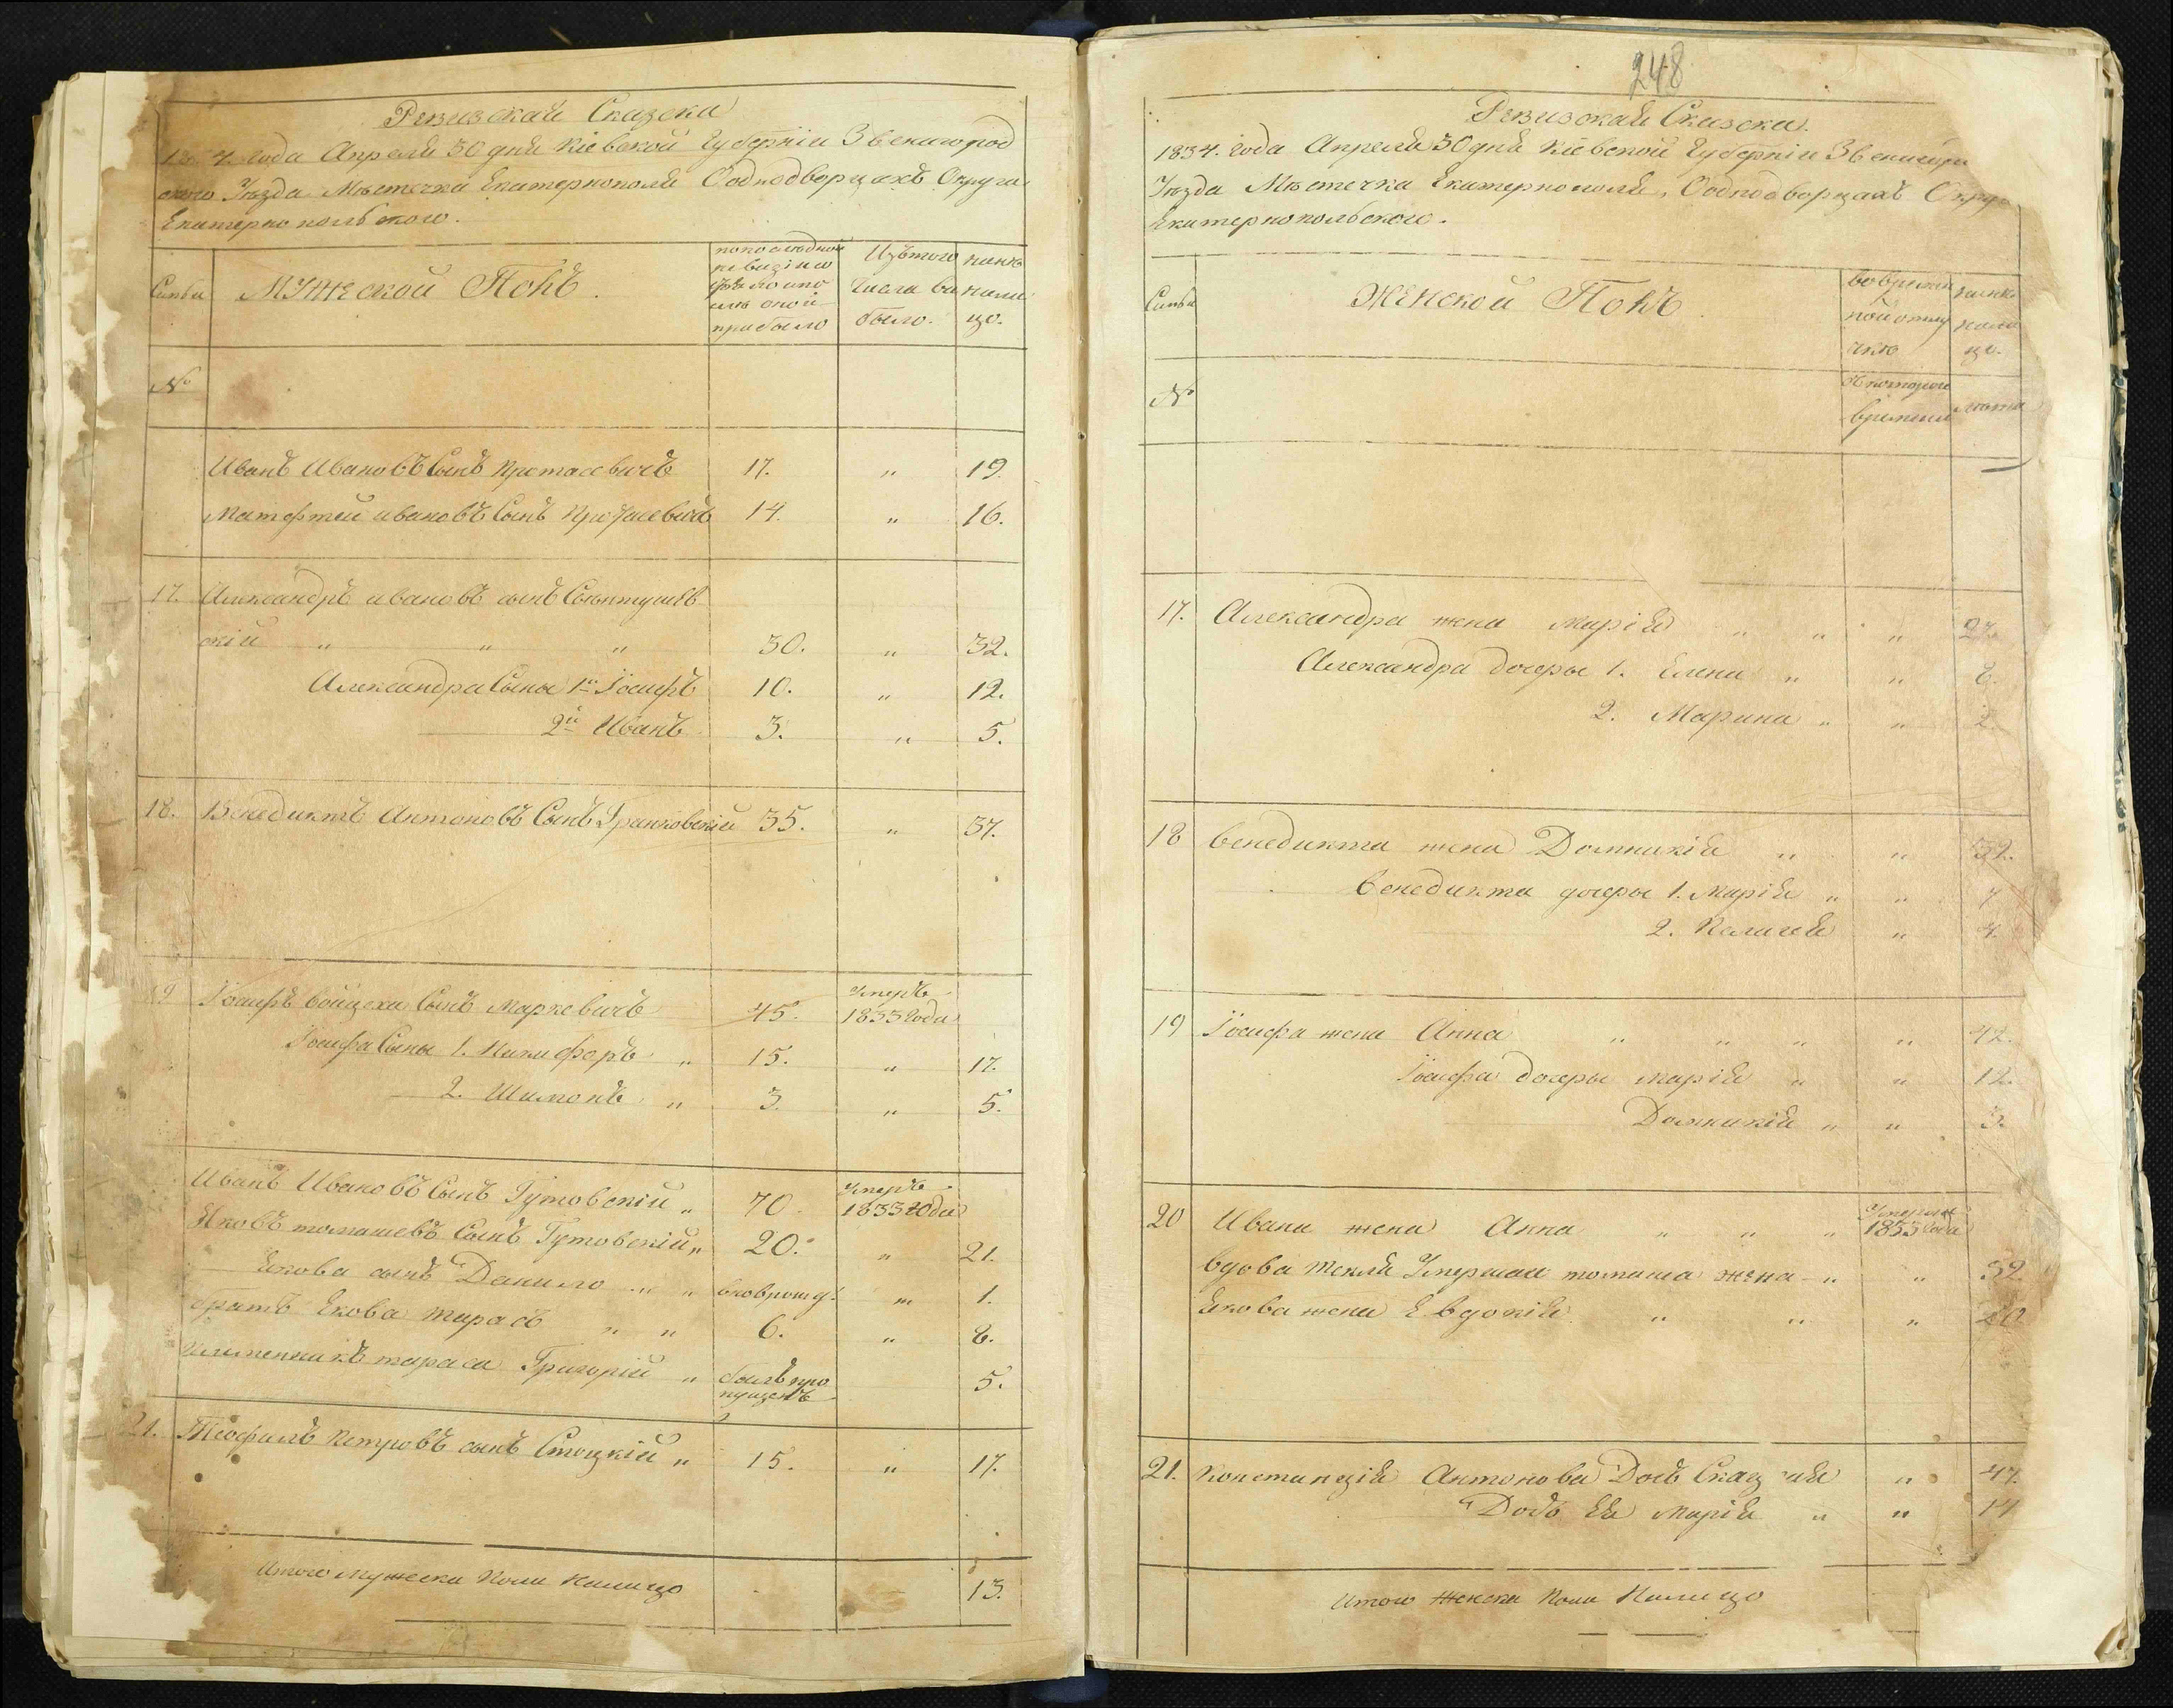 Ревизская Сказска
1834 года Апреля 30 дня Кіевской Губерніи Звенигород
ского Уѣзда Мѣстечка Екатеринополя Ооднодворцахъ Округа
Екатеринопольского.
Семьи
МУЖЕСКОЙ ПОЛЪ.
попоследней
ревизіи со
стояло и по
слѣ оной
прибыло
Изътого
числа вы
было.
нынѣ
нали
цо.
№
Иванъ Ивановъ Сынъ Протасевичъ 17. " 19.
Матфтей ивановъ Сынъ Протасевичъ 14. " 16.
17. Александръ ивановъ сынъ
скій " " " 30. " 32.
Александра Сыны 1й Іосифъ 10. " 12.
2й Иванъ 3. " 5.
18. Венедиктъ Антоновъ Сынъ Гранковскій 35. " 37.
19 Іосифъ войцеха Сынъ Маркевичъ 45. Умеръ 1833 Года
Іосифа Сыны 1. Никифоръ " 15. " 17.
2. Шимонъ " 3. " 5.
Иванъ Ивановъ Сынъ Гутовскій " 70. Умеръ 1833 Года
Яковъ томашевъ Сынъ Гутовскій " 20. " 21.
Якова сынъ Данило " " вновьрожд: " 1.
братъ Якова тарасъ " " 6. " 8.
племенникъ тараса Григорій " былъ про 5.
пущенъ
21. Теофилъ Петровъ сынъ Стоцкій " 15. " 17.
Итого Мужеска Пола Налицо 13.
248
Ревизская Сказска.
1834. года Апреля 30 дня Кіевской Губерніи Звенигоро
Уѣзда Мѣстечка Екатеринополя, Ооднодворцахъ Окру
Екатеринопольского.
Семьи
ЖЕНСКОЙ ПОЛЪ.
вовремен
ной отлу
чкѣ
нынѣ
нали
цо.
№
Скоторого
времени
лѣта
17. Александра жена Марія " " " 27.
Александра дочеры 1. Елена " " 8.
2. Марина " " 2.
18 венедикта жена Домникія " " 32.
венедикта дочеры 1. Марія " " 7
2. Пелагея " 4.
19 Іосифа жена Анна " " " " 42.
Іосифа дочеры марія " " 12.
Домникія " " 3.
20 Ивана жена Анна " " " Умерла 1833 года
вдова текля Умершая томаша жена " " 52.
Якова жена Евдокія " " " 20
21. Констанція Антонова Дочь " 47.
Дочь Ея Марія " " 14
Итого Женска Пола Налицо